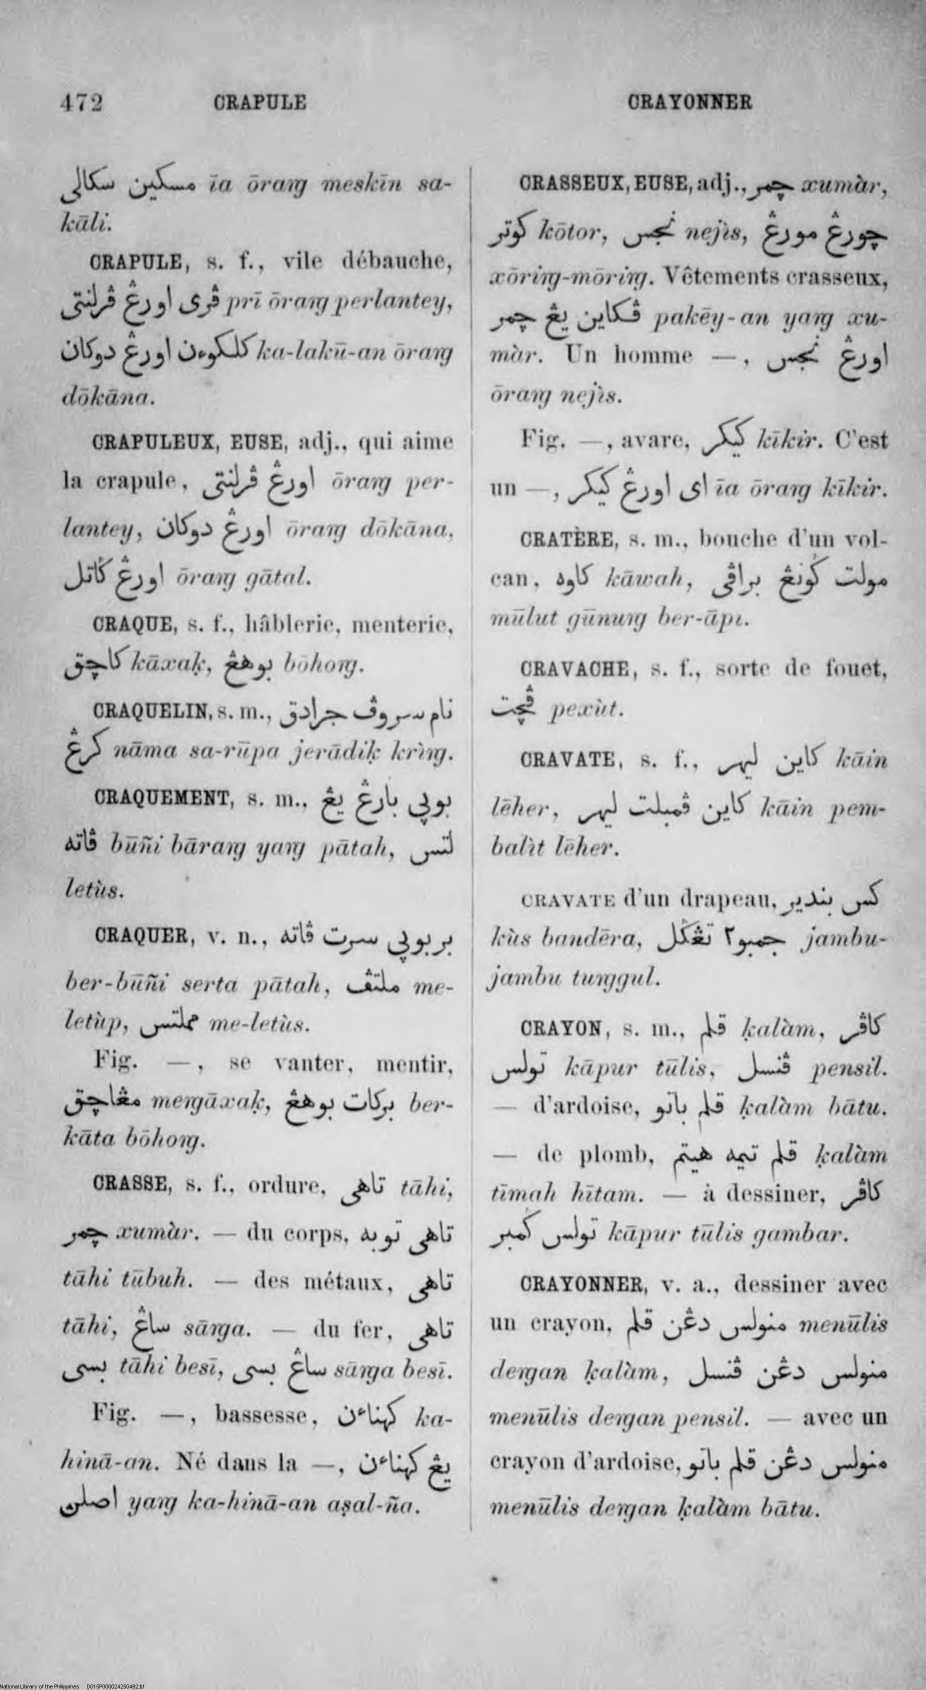 472 CRAPULE CRAYONNER
مسكين سكالى īa ōraŋ meskīn sa-
kāli.
CRAPULE, s. f., vile débauche,
ڤرى اورڠ ڤرلنتى prī ōraŋ perlantey,
كلكوءن اورڠ دوكان ka-lakū-an ōraŋ
dōkāna.
CRAPULEUX, EUSE, adj., qui aime
la crapule, اورڠ ڤرلنتى ōraŋ per-
lantey, اورڠ دوكان ōraŋ dōkāna,
اورڠ ݢاتل ōraŋ gātal.
CRAQUE, s. f., hâblerie, menterie,
كاچق kāxaḳ, بوهڠ bōhoŋ.
CRAQUELIN, s. m., نام سروڤ جرادق
كرڠ nāma sa-rūpa jerādiḳ krìŋ.
CRAQUEMENT, s. m., بوپي بارڠ يڠ
ڤاته būñi bāraŋ yaŋ pātah, لتس
letùs.
CRAQUER, v. n., بربوپي سرت ڤاته
ber-būñi serta pātah, ملتڤ me-
letùp, ململتس me-letùs.
Fig. —, se vanter, mentir,
مڠاچق meŋāxaḳ, بركات بوهڠ ber-
kāta bōhoŋ.
CRASSE, s. f., ordure, تاهى tāhi,
چمر xumàr. — du corps, تاهى توبه
tāhi tūbuh. — des métaux, تاهى
tāhi, ساڠ sāŋa. — du fer, تاهى
بسى tāhi besī, ساڠ بسى sāŋa besī.
Fig. —, bassesse, كهناءن ka-
hinā-an. Né dans la —, يڠ كهناءن
اصلن yaŋ ka-hinā-an aṣal-ña.
CRASSEUX, EUSE, adj., چمر xumàr,
كوتر kōtor, نجس nejìs, چورڠ مورڠ
xōriŋ-mōriŋ. Vêtements crasseux,
ڤكاين يڠ چمر pakēy-an yaŋ xu-
màr. Un homme —, اورڠ نجس
ōraŋ nejìs.
Fig. —, avare, كيكر kīkir. C'est
un —, اى اورڠ كيكر īa ōraŋ kīkir.
CRATÈRE, s. m., bouche d'un vol-
can, كاوه kāwah, مولت ݢونڠ براڤى
mūlut gūnuŋ ber-āpi.
CRAVACHE, s. f., sorte de fouet,
ڤچت pexùt.
CRAVATE, s. f., كاين ليهر kāin
lēher, كاين ڤمبلت ليهر kāin pem-
balìt lēher.
CRAVATE d'un drapeau, كس بندير
kùs bandēra, جمبو٢ تڠݢل jambu-
jambu tuŋgul.
CRAYON, s. m., قلم ḳalàm, كاڤر
تولس kāpur tūlis, ڤنسل pensil.
— d'ardoise, قلم باتو ḳalàm bātu.
— de plomb, قلم تيمه هيتم ḳalàm
tīmah hītam. — à dessiner, كاڤر
تولس ݢمبر kāpur tūlis gambar.
CRAYONNER, v. a., dessiner avec
un crayon, منولس دڠن قلم menūlis
deŋan ḳalàm, منولس دڠن ڤنسل
menūlis deŋan pensil. — avec un
crayon d'ardoise, منولس دڠن قلم باتو
menūlis deŋan ḳalàm bātu.
National Library of the Philippines